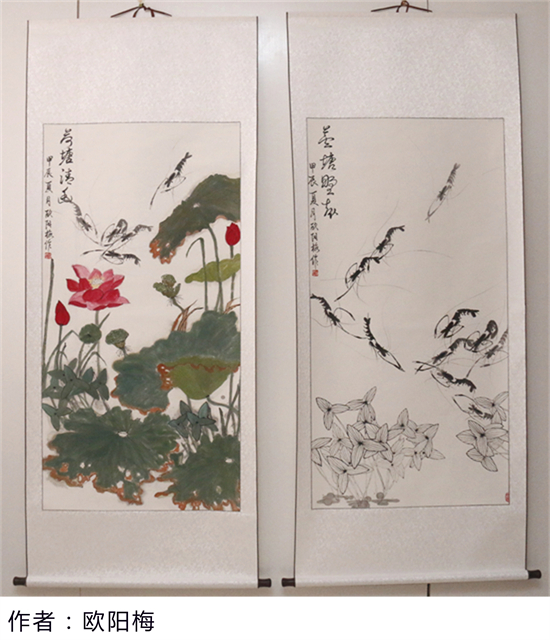 荷塘清趣
甲辰夏月欧阳梅作
荷塘野趣
甲辰夏月欧阳梅作
作者：欧阳梅